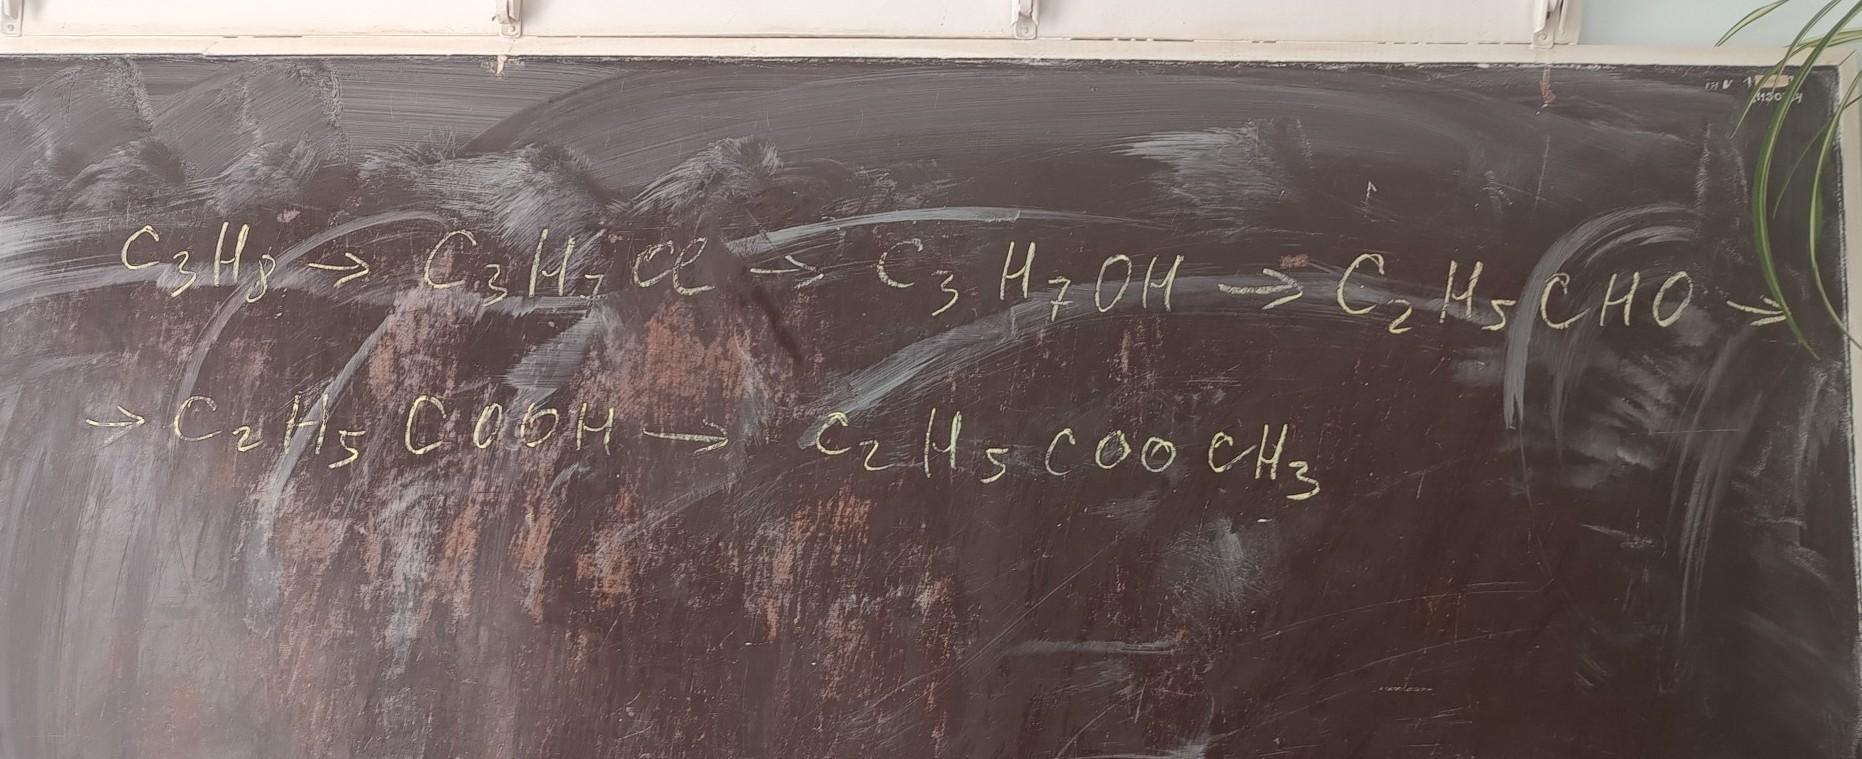 C₃H₈ → C₃H₇Cl → C₃H₇OH → C₂H₅CHO →
→ C₂H₅COOH → C₂H₅COOCH₃